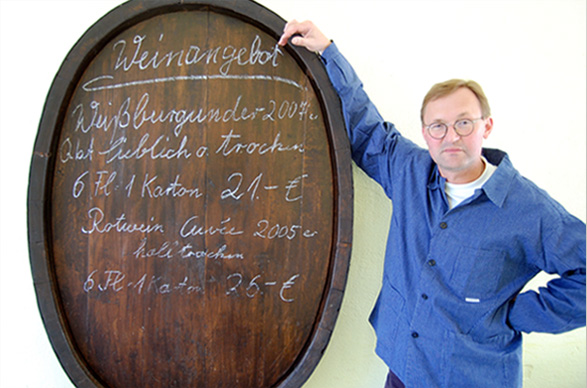 Weinangebot
Weißburgunder 2007er
Qbt lieblich o. trocken
6 Fl = 1 Karton 21.- €
Rotwein Cuvée 2005er
halbtrocken
6 Fl = 1 Karton 26.- €